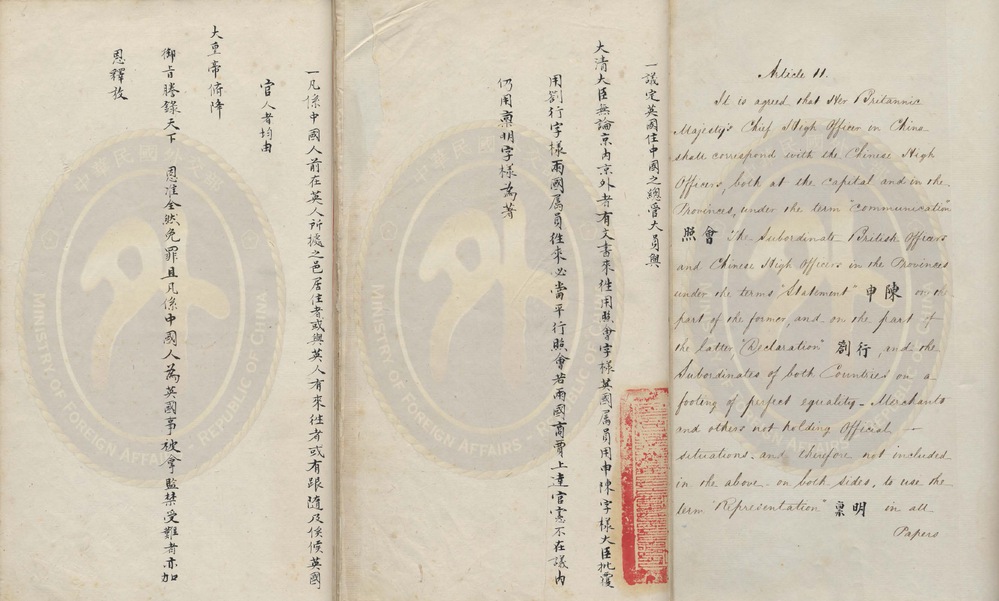 一議定英國住中國之總管大員與
大清大臣無論京內京外者有文書來往用照會字樣英國屬員用申陳字樣大臣批覆
用劄行字樣兩國屬員往來必當平行照會若兩國商賈上達官憲不在議內
仍用稟明字樣為著
一凡係中國人前在英人所據之邑居住者或與英人有來往者或有跟隨及俟候英國
官人者均由
大皇帝俯降
御旨謄錄天下 恩准全然免罪且凡係中國人為英國事被拿監禁受難者亦加
恩釋放
Article 11.
It is agreed that Her Britannic
Majesty's Chief High Officer in China
shall correspond with the Chinese High
Officers, both at the capital and in the
Provinces, under the term "communication"
照會 The Subordinate British Officers
and Chinese High Officers in the Provinces
under the terms "Statement" 申陳 on the
part of the former, and on the part of
the latter "Declaration" 劄行, and the
Subordinates of both Countries on a
footing of perfect equality - Merchants
and others not holding Official
situations and therefore not included
in the above - on both sides, to use the
term "Representation" 稟明 in all
Papers
中華民國外交部
MINISTRY OF FOREIGN AFFAIRS
REPUBLIC OF CHINA
中華民國外交部
MINISTRY OF FOREIGN AFFAIRS
REPUBLIC OF CHINA